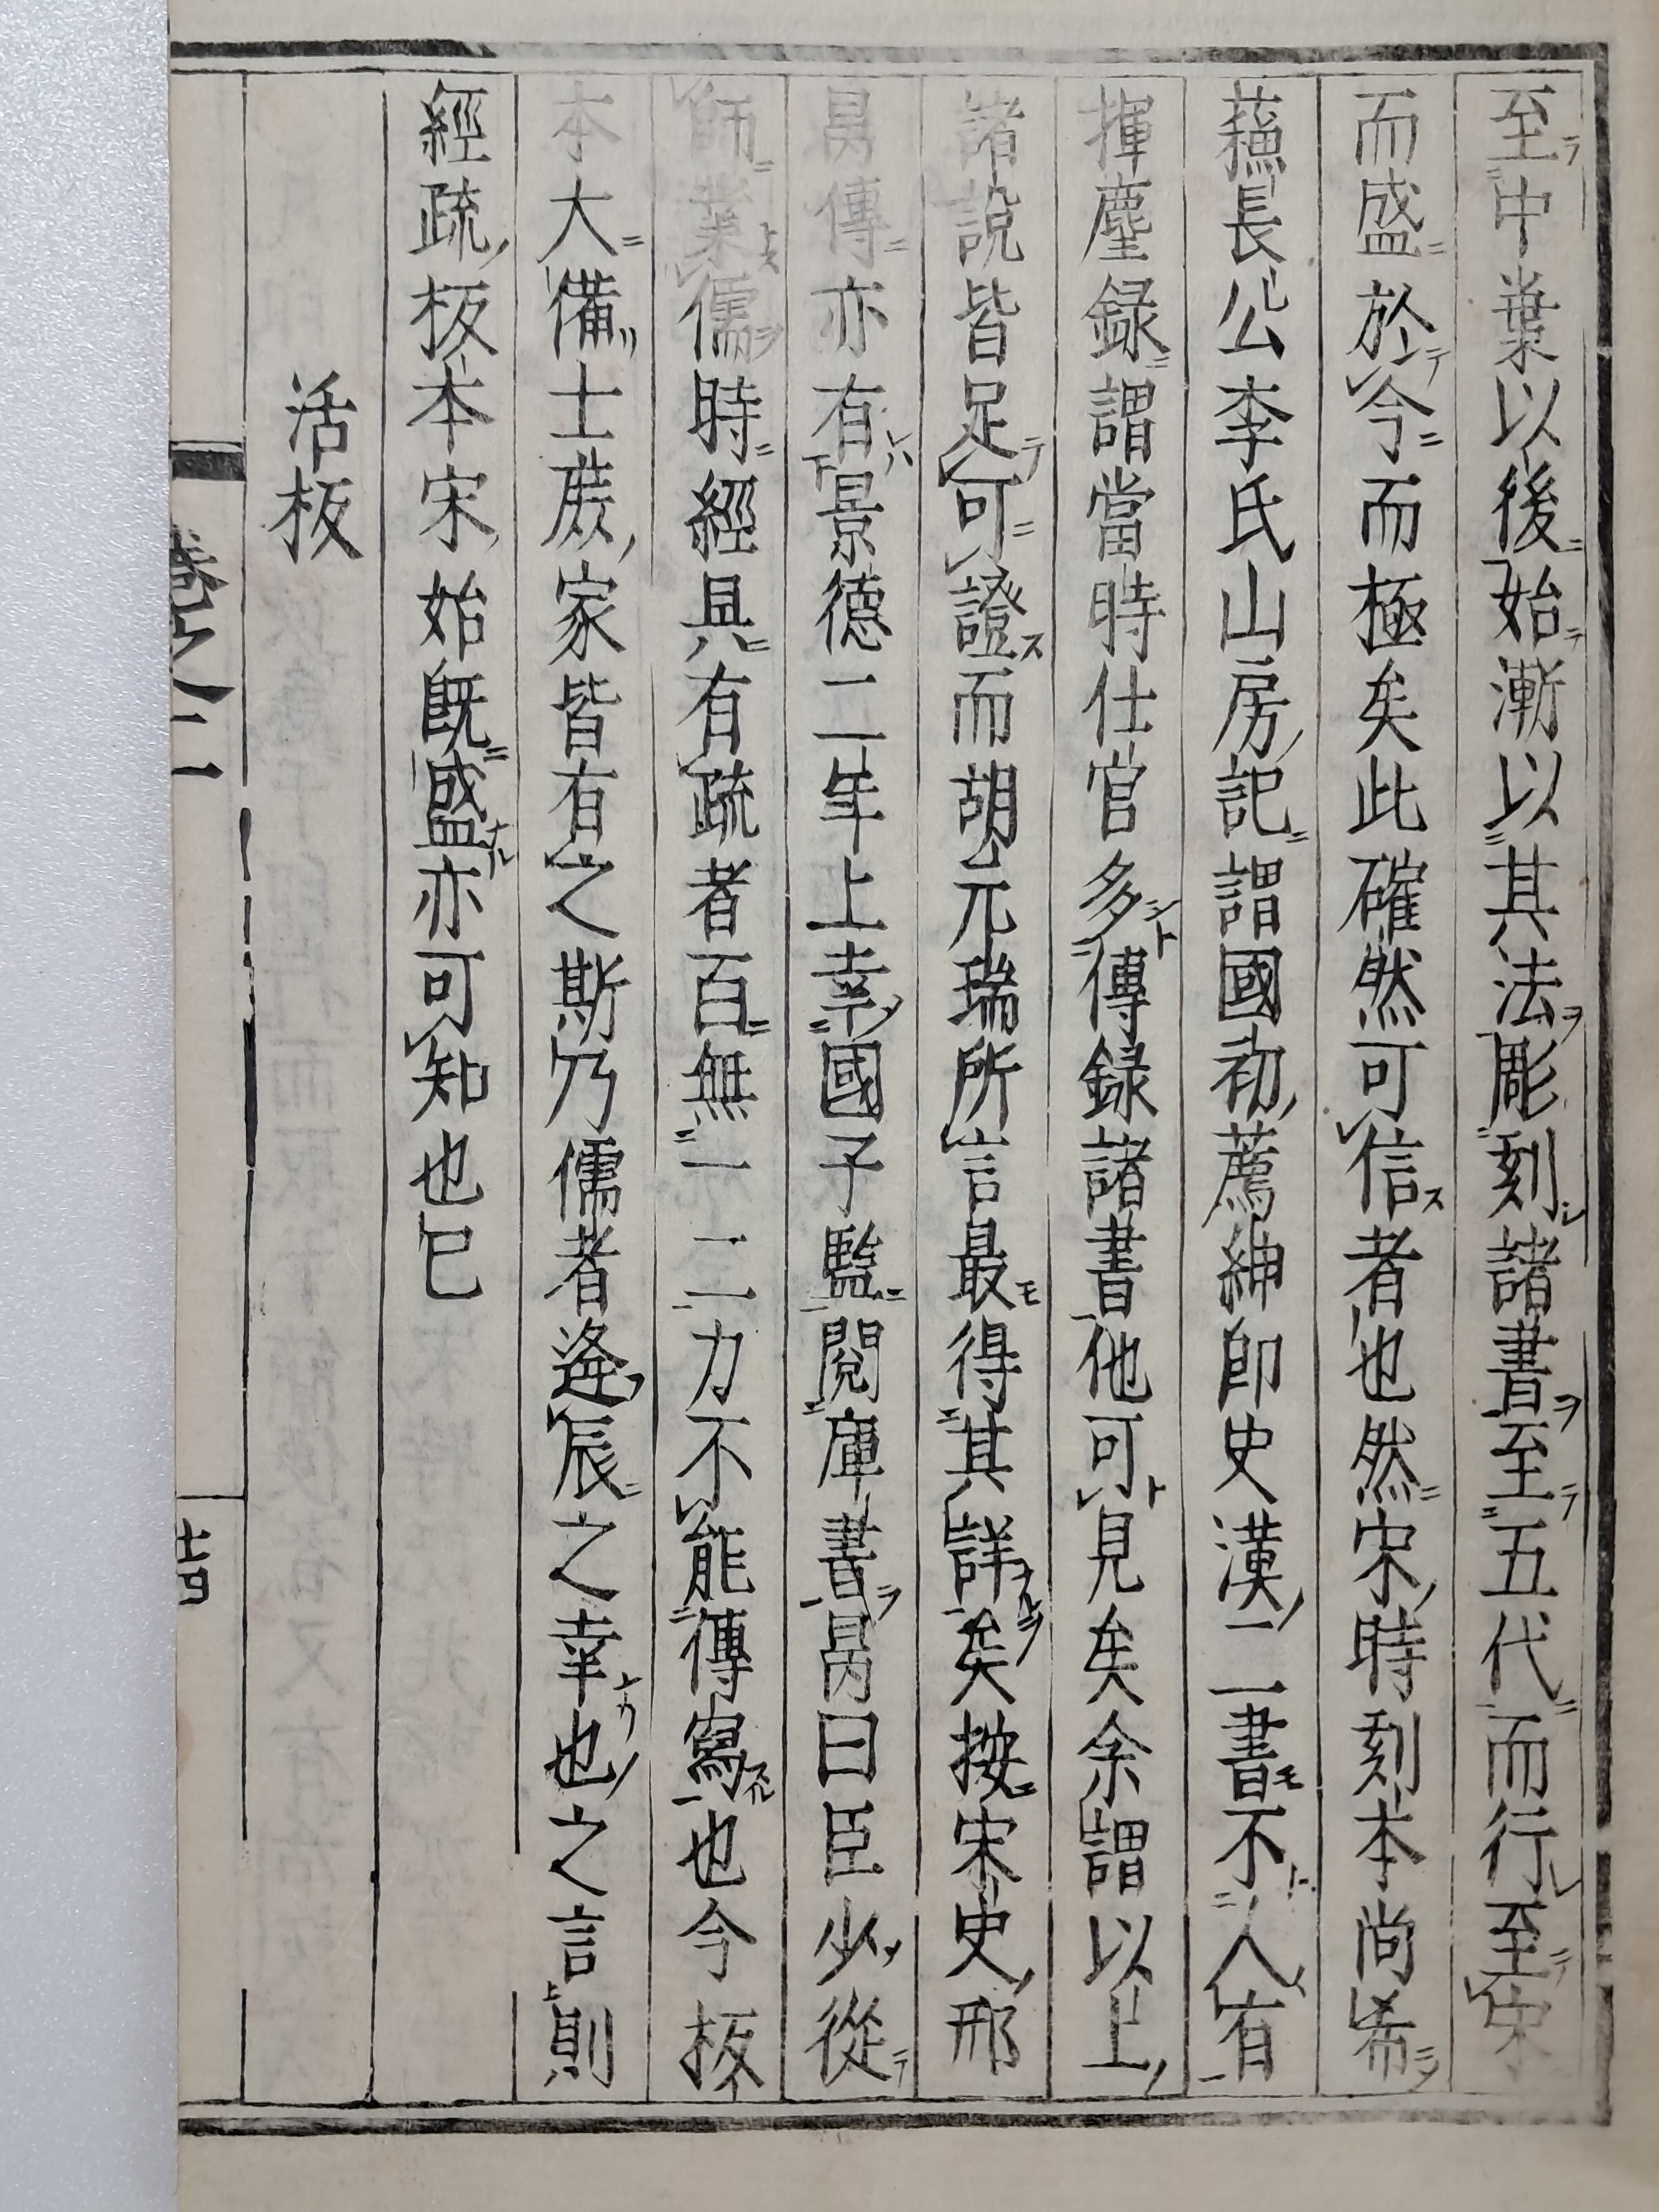 至中葉以後始漸以其法彫刻諸書至五代而行至宋
而盛於今而極矣此確然可信者也然宋時刻本尚希
蘓長公李氏山房記謂國初薦紳即史漢二書不人有
揮麈録謂當時仕宦多傳録諸書他可見矣余謂以上
諸說皆足可證而胡元瑞所言最得其詳矣按宋史邢
昺傳亦有景德二年上幸國子監閲庫書昺曰臣少從
師業儒時經具有疏者百無一二力不能傳寫也今板
本大備士庶家皆有之斯乃儒者逢辰之幸也之言則
經疏板本宋始既盛亦可知也已
活板
卷之二
十四